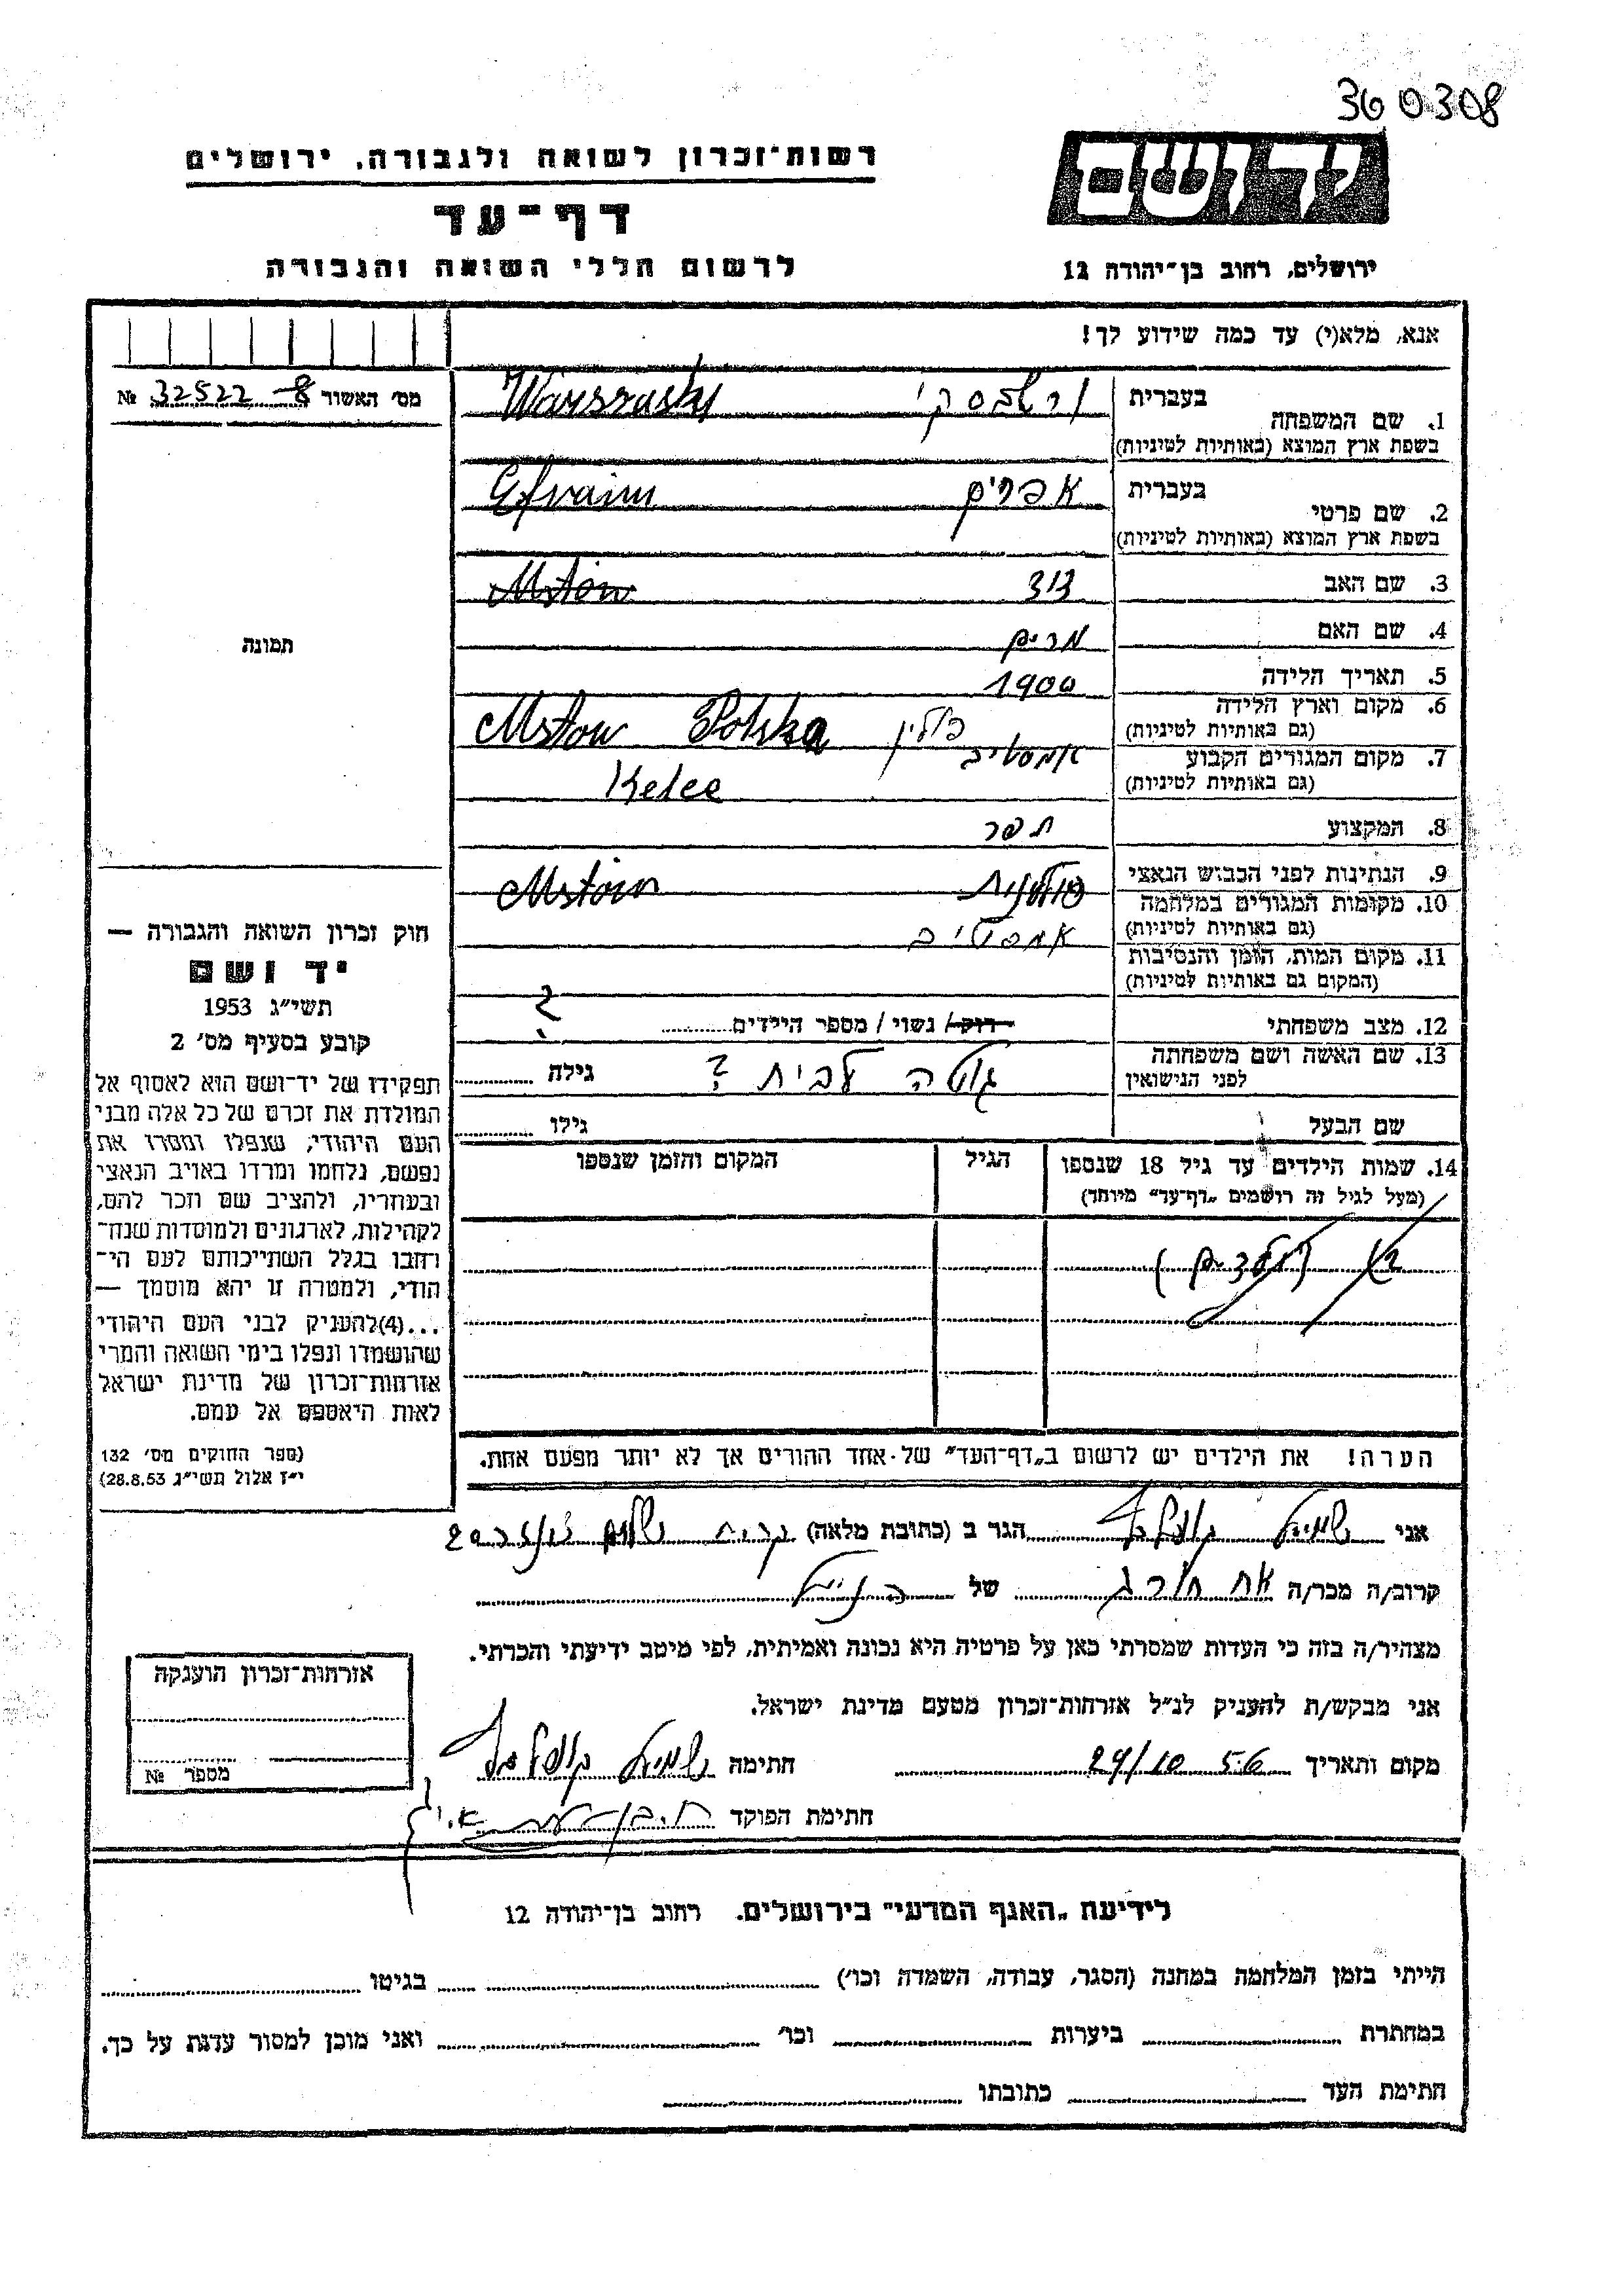 360308
יד ושם
רשות־זכרון לשואה ולגבורה, ירושלים
דף־עד
לרשום חללי השואה והגבורה
ירושלים, רחוב בן־יהודה 12
אנא, מלא(י) עד כמה שידוע לך!
מס' האשור 32522-8 №
1. שם המשפחה
בעברית
ורשבסקי Warszaski
בשפת ארץ המוצא (באותיות לטיניות)
2. שם פרטי
בעברית
אפרים Efraim
בשפת ארץ המוצא (באותיות לטיניות)
3. שם האב
דוד Mstów
4. שם האם
מרים
תמונה
5. תאריך הלידה
1900
6. מקום וארץ הלידה
(גם באותיות לטיניות)
פולין Mstow Polska
7. מקום המגורים הקבוע
(גם באותיות לטיניות)
אמסטיב
Kelce
8. המקצוע
תפר
9. הנתינות לפני הכבוש הנאצי
פולנית Mstow
10. מקומות המגורים במלחמה
(גם באותיות לטיניות)
אמסטיב
11. מקום המות, הזמן והנסיבות
(המקום גם באותיות לטיניות)
12. מצב משפחתי
רוק/ נשוי / מספר הילדים ?
13. שם האשה ושם משפחתה
לפני הנישואין
גוטה לבית ? גילה
שם הבעל
גילו
14. שמות הילדים עד גיל 18 שנספו
(מעל לגיל זה רושמים „דף־עד" מיוחד)
הגיל
המקום והזמן שנספו
(ילדים)
הערה! את הילדים יש לרשום ב„דף־העד" של אחד ההורים אך לא יותר מפעם אחת.
חוק זכרון השואה והגבורה —
יד ושם
תשי"ג 1953
קובע בסעיף מס' 2
תפקידו של יד־ושם הוא לאסוף אל
המולדת את זכרם של כל אלה מבני
העם היהודי, שנפלו ומסרו את
נפשם, נלחמו ומרדו באויב הנאצי
ובעוזריו, ולהציב שם וזכר להם,
לקהילות, לארגונים ולמוסדות שנח־
רבו בגלל השתייכותם לעם הי־
הודי, ולמטרה זו יהא מוסמך —
...(4)להעניק לבני העם היהודי
שהושמדו ונפלו בימי השואה והמרי
אזרחות־זכרון של מדינת ישראל
לאות היאספם אל עמם.
(ספר החוקים מס' 132
י"ז אלול תשי"ג 28.8.53)
אני הגר ב (כתובת מלאה) קרית שלום
קרוב/ה מכר/ה של
מצהיר/ה בזה כי העדות שמסרתי כאן על פרטיה היא נכונה ואמיתית, לפי מיטב ידיעתי והכרתי.
אני מבקש/ת להעניק לנ"ל אזרחות־זכרון מטעם מדינת ישראל.
מקום ותאריך 29/10 56 חתימה
חתימת הפוקד
אזרחות־זכרון הוענקה
מספר №
לידיעת „האגף המדעי" בירושלים. רחוב בן־יהודה 12
הייתי בזמן המלחמה במחנה (הסגר, עבודה, השמדה וכו') בגיטו
במחתרת ביערות וכו' ואני מוכן למסור עדות על כך.
חתימת העד כתובתו